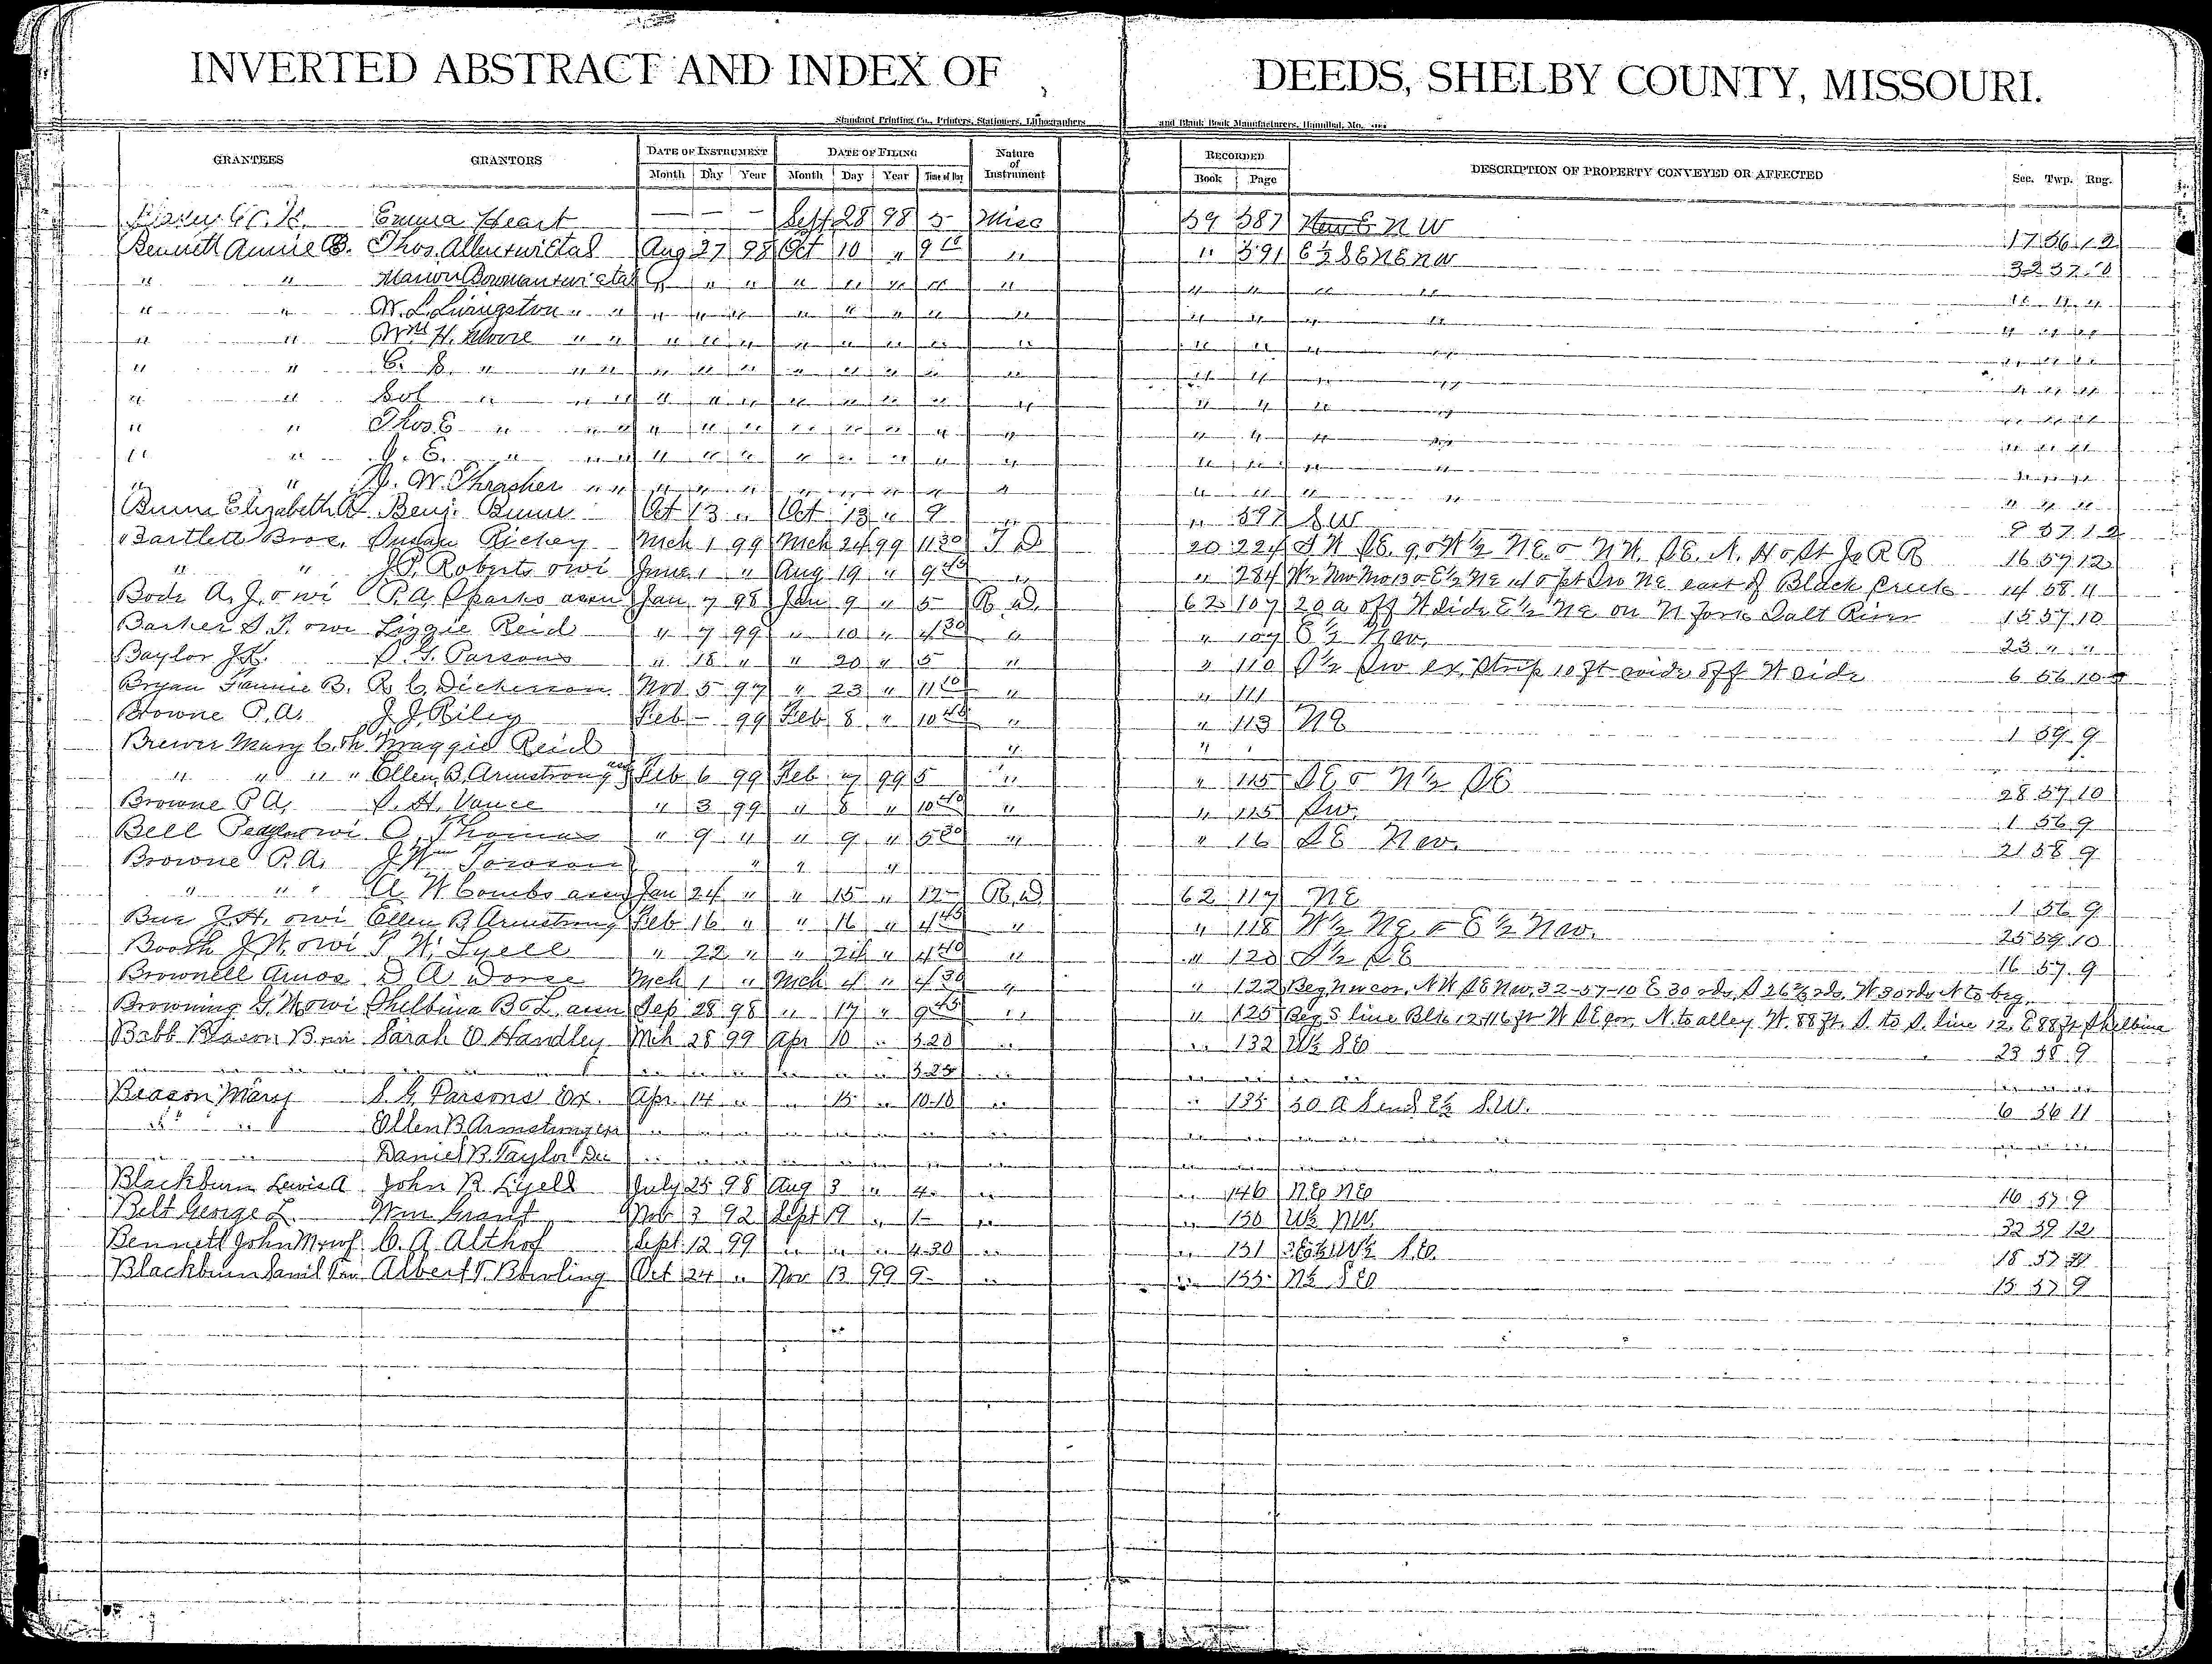 INVERTED ABSTRACT AND INDEX OF DEEDS, SHELBY COUNTY, MISSOURI.
Standard Printing Co., Printers, Stationers, Lithographers and Blank Book Manufacturers, Hannibal, Mo.
GRANTEES GRANTORS DATE OF INSTRUMENT DATE OF FILING Nature of Instrument RECORDED DESCRIPTION OF PROPERTY CONVEYED OR AFFECTED Sec. Twp. Rng.
Month Day Year Month Day Year Time of Day Book Page
Emma Heart — — — Sept 28 98 5 Misc 59 587 N W 17 56 12
Bennett Annie B. Thos. Allen & wi et al Aug 27 98 Oct 10 " 9 10 " " 591 E ½ SE NE NW 32 57
" " Marion Bowman & wi et al " " " " " " " " " " " " " " "
" " W. L. Livingston " " " " " " " " " " " " " " " " "
" " Wm H. Moore " " " " " " " " " " " " " " " " "
" " C. B. " " " " " " " " " " " " " " " " " "
" " Sol " " " " " " " " " " " " " " " " " "
" " Thos E " " " " " " " " " " " " " " " " " "
" " J. E. " " " " " " " " " " " " " " " " " "
" " W. Thrasher " " " " " " " " " " " " " " " " "
Elizabeth A. Benj. Oct 13 " Oct 13 " 9 " " 597 S W 8 57 12
Bartlett Bros. Susan Richey Mch 1 99 Mch 24 99 11 30 T D 20 224 16 57 12
" " J. P. Roberts & wi June 1 " Aug 19 " 9 45 " " 284 east of Black Creek 14 58 11
Bode A. J. & wi P. A. Sparks Jan 7 98 Jan 9 " 5 R D. 62 107 20 a off W side E ½ NE on N fork Salt River 15 57 10
Barker S. T. & wi Lizzie Reid " 7 99 " 10 " 4 30 " " 109 E ½ Nw. 23 " "
Baylor J. S. G. Parsons " 18 " " 20 " 5 " " 110 S ½ Sw ex. strip 10 ft wide off W side 6 56 10
Bryan Fannie B. R. C. Dickerson Nov 5 97 " 23 " 11 10 " " 111
Browne P. A. J J Riley Feb — 99 Feb 8 " 10 40 " " 113 NE 1 59 9
Brewer Mary C. Maggie Reid " "
" " " " Ellen B. Armstrong Feb 6 99 Feb 7 99 5 " " 115 SE & N ½ SE 28 57 10
Browne P A. S. H. Vance " 3 99 " 8 " 10 40 " " 115 Sw. 1 56 9
Bell & wi O. Thomas " 9 " " 9 " 5 30 " " 16 SE Nw. 21 58 9
Browne P. A. J Wm Towson " " "
" " " A W Combs Jan 24 " " 15 " 12 R. D 62 117 NE 1 56 9
J. H. & wi Ellen B Armstrong Feb 16 " " 16 " 4 45 " " 118 W ½ NE & E ½ Nw. 25 59 10
Booth J W. & wi T. W. Lyell " 22 " " 24 " 4 40 " " 120 S ½ SE 16 57 9
Brownell Amos D A Mch 1 " Mch 4 " 4 30 " " 122 Beg. nw cor. NW SE Nw, 32-57-10 E 30 rds, S 26⅔ rds, W 30 rds N to beg.
Browning G. W & wi Shelbina B & L. assn Sep 28 98 " 17 " 9 45 " " 125 Beg. S line Blk 12, 116 ft W SE cor. N. to alley W. 88 ft. S. to S. line 12. E 88 ft Shelbina
Babb Beason B. Sarah O Handley Mch 28 99 Apr 10 " 3 20 " " 132 W½ SE 23 58 9
" " " " " " " " " " 3 25 " " " " " " " " "
Beason Mary S. G. Parsons Ex. Apr 14 " " 15 " 10 10 " " 135 30 A S end E½ S.W. 6 56 11
" " Ellen B Armstrong Exr " " " " " " " " " " " " " " "
" " Daniel B. Taylor Dec " " " " " " " " " " " " " " "
Blackburn Lewis A John R Lyell July 25 98 Aug 3 " 4 " " 146 NE NE 16 57 9
Belt George L. Wm Grant Nov 3 92 Sept 19 " 1 " " 150 W½ NW. 32 59 12
Bennett John M & wf C. A. Althof Sept 12 99 " " " 4 30 " " 151 S.E. 18 57
Blackburn Albert T. Bowling Oct 24 " Nov 13 99 9 " " 155 N½ SE 15 57 9